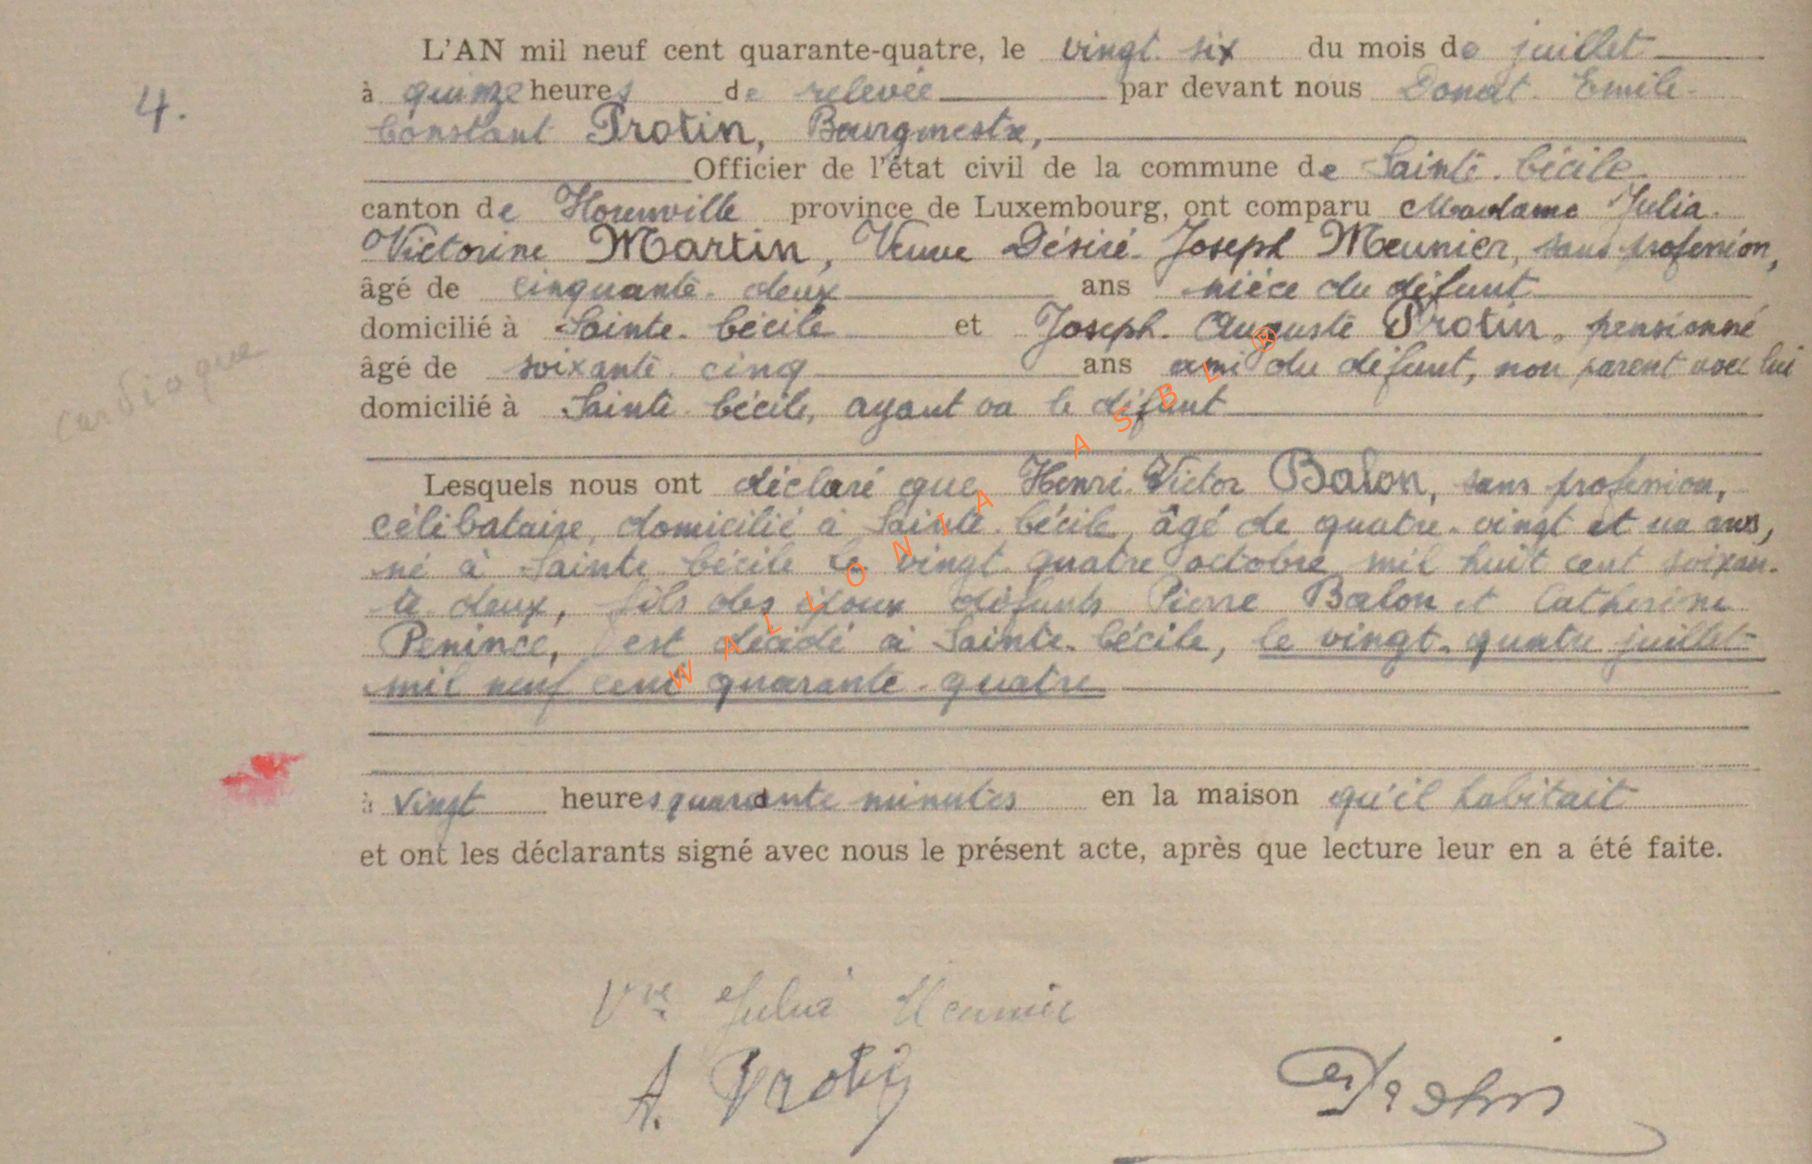 L'AN mil neuf cent quarante-quatre, le vingt-six du mois de juillet
4.
à quinze heures de relevée par devant nous Donat Emile
Constant Protin, Bourgmestre,
Officier de l'état civil de la commune de Sainte-Cécile
canton de Florenville province de Luxembourg, ont comparu Madame Julia
Victorine Martin, Veuve Désiré-Joseph Meunier, sans profession,
âgé de cinquante-deux ans nièce du défunt
domicilié à Sainte-Cécile et Joseph-Auguste Protin, pensionné
cardiaque
âgé de soixante-cinq ans ami du défunt, non parent avec lui
domicilié à Sainte-Cécile, ayant vu le défunt
Lesquels nous ont déclaré que Henri-Victor Balon, sans profession,
célibataire, domicilié à Sainte-Cécile, âgé de quatre-vingt et un ans,
né à Sainte-Cécile le vingt-quatre octobre mil huit cent soixan-
te deux, fils des époux défunts Pierre Balon et Catherine
Penince, est décédé à Sainte-Cécile, le vingt-quatre juillet
mil neuf cent quarante-quatre
à vingt heures quarante minutes en la maison qu'il habitait
et ont les déclarants signé avec nous le présent acte, après que lecture leur en a été faite.
Vve Julia Meunier
A. Protin
Protin
WALLONIA ASBL ®